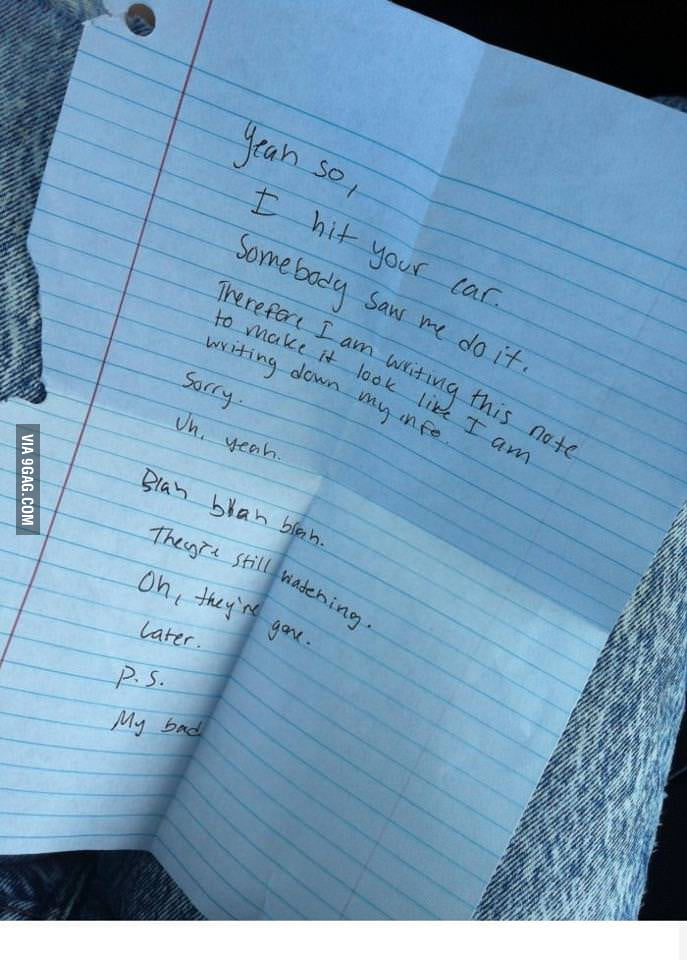 Yeah so,
I hit your car.
Somebody saw me do it.
Therefore I am writing this note
to make it look like I am
writing down my info.
Sorry.
Uh, yeah.
Blah blah blah.
They're still watching.
Oh, they're gone.
Later.
P.S.
My bad
VIA 9GAG.COM